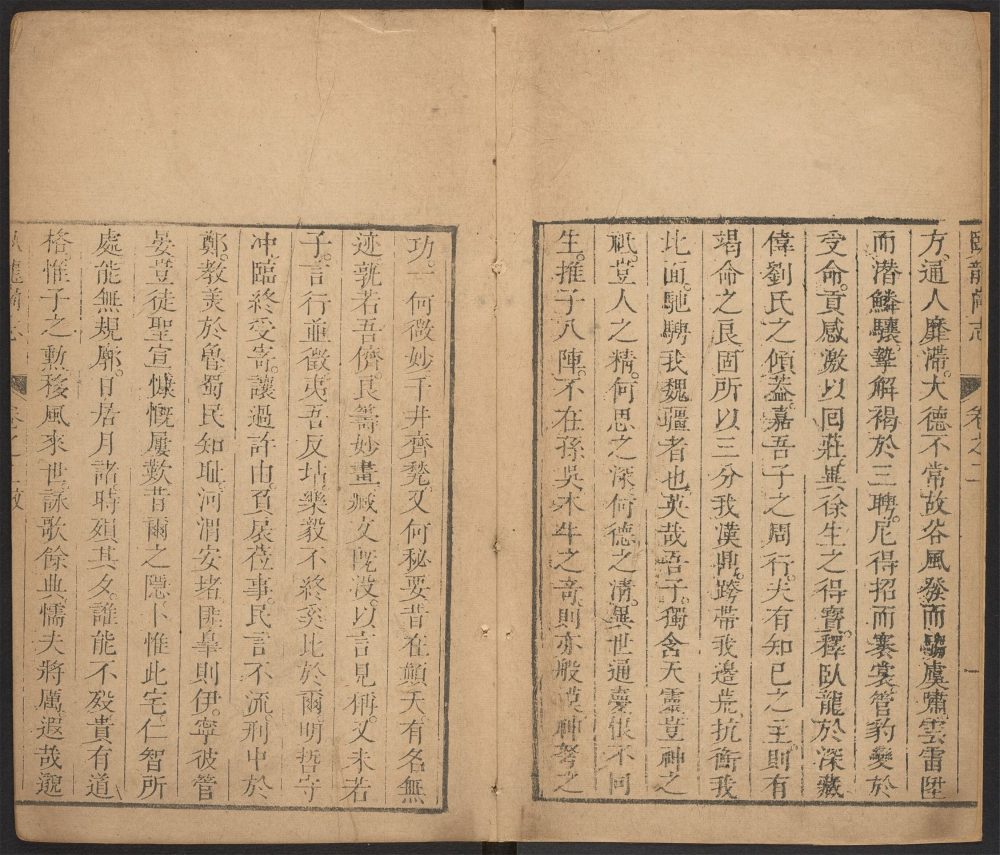 臥龍崗志
卷之二
一
方通人靡滯大德不常故谷風發而騶虞嘯雲雷陞
而潛鱗驤摯解褐於三聘尼得招而褰裳管豹變於
受命貢感激以回莊異徐生之得寶釋臥龍於深藏
偉劉氏之傾蓋嘉吾子之周行夫有知已之主則有
竭命之良固所以三分我漢鼎跨帶我邊荒抗衡我
北面馳騁我魏疆者也英哉吾子獨含天靈豈神之
祇豈人之精何思之深何德之清異世通夢恨不同
生推子八陣不在孫吳木牛之奇則亦般模神弩之
功一何微妙千井齊甃又何秘要昔在顛夭有名無
迹孰若吾儕良籌妙畫臧文旣沒以言見稱又未若
子言行並徵夷吾反坫樂毅不終奚比於爾明哲守
冲臨終受寄讓過許由負扆莅事民言不流刑中於
鄭教美於魯蜀民知耻河渭安堵匪臯則伊寧彼管
晏豈徒聖宣慷慨屢歎昔爾之隱卜惟此宅仁智所
處能無規廓日居月諸時殞其夕誰能不歿貴有道
格惟子之勲移風來世詠歌餘典懦夫將厲遐哉邈